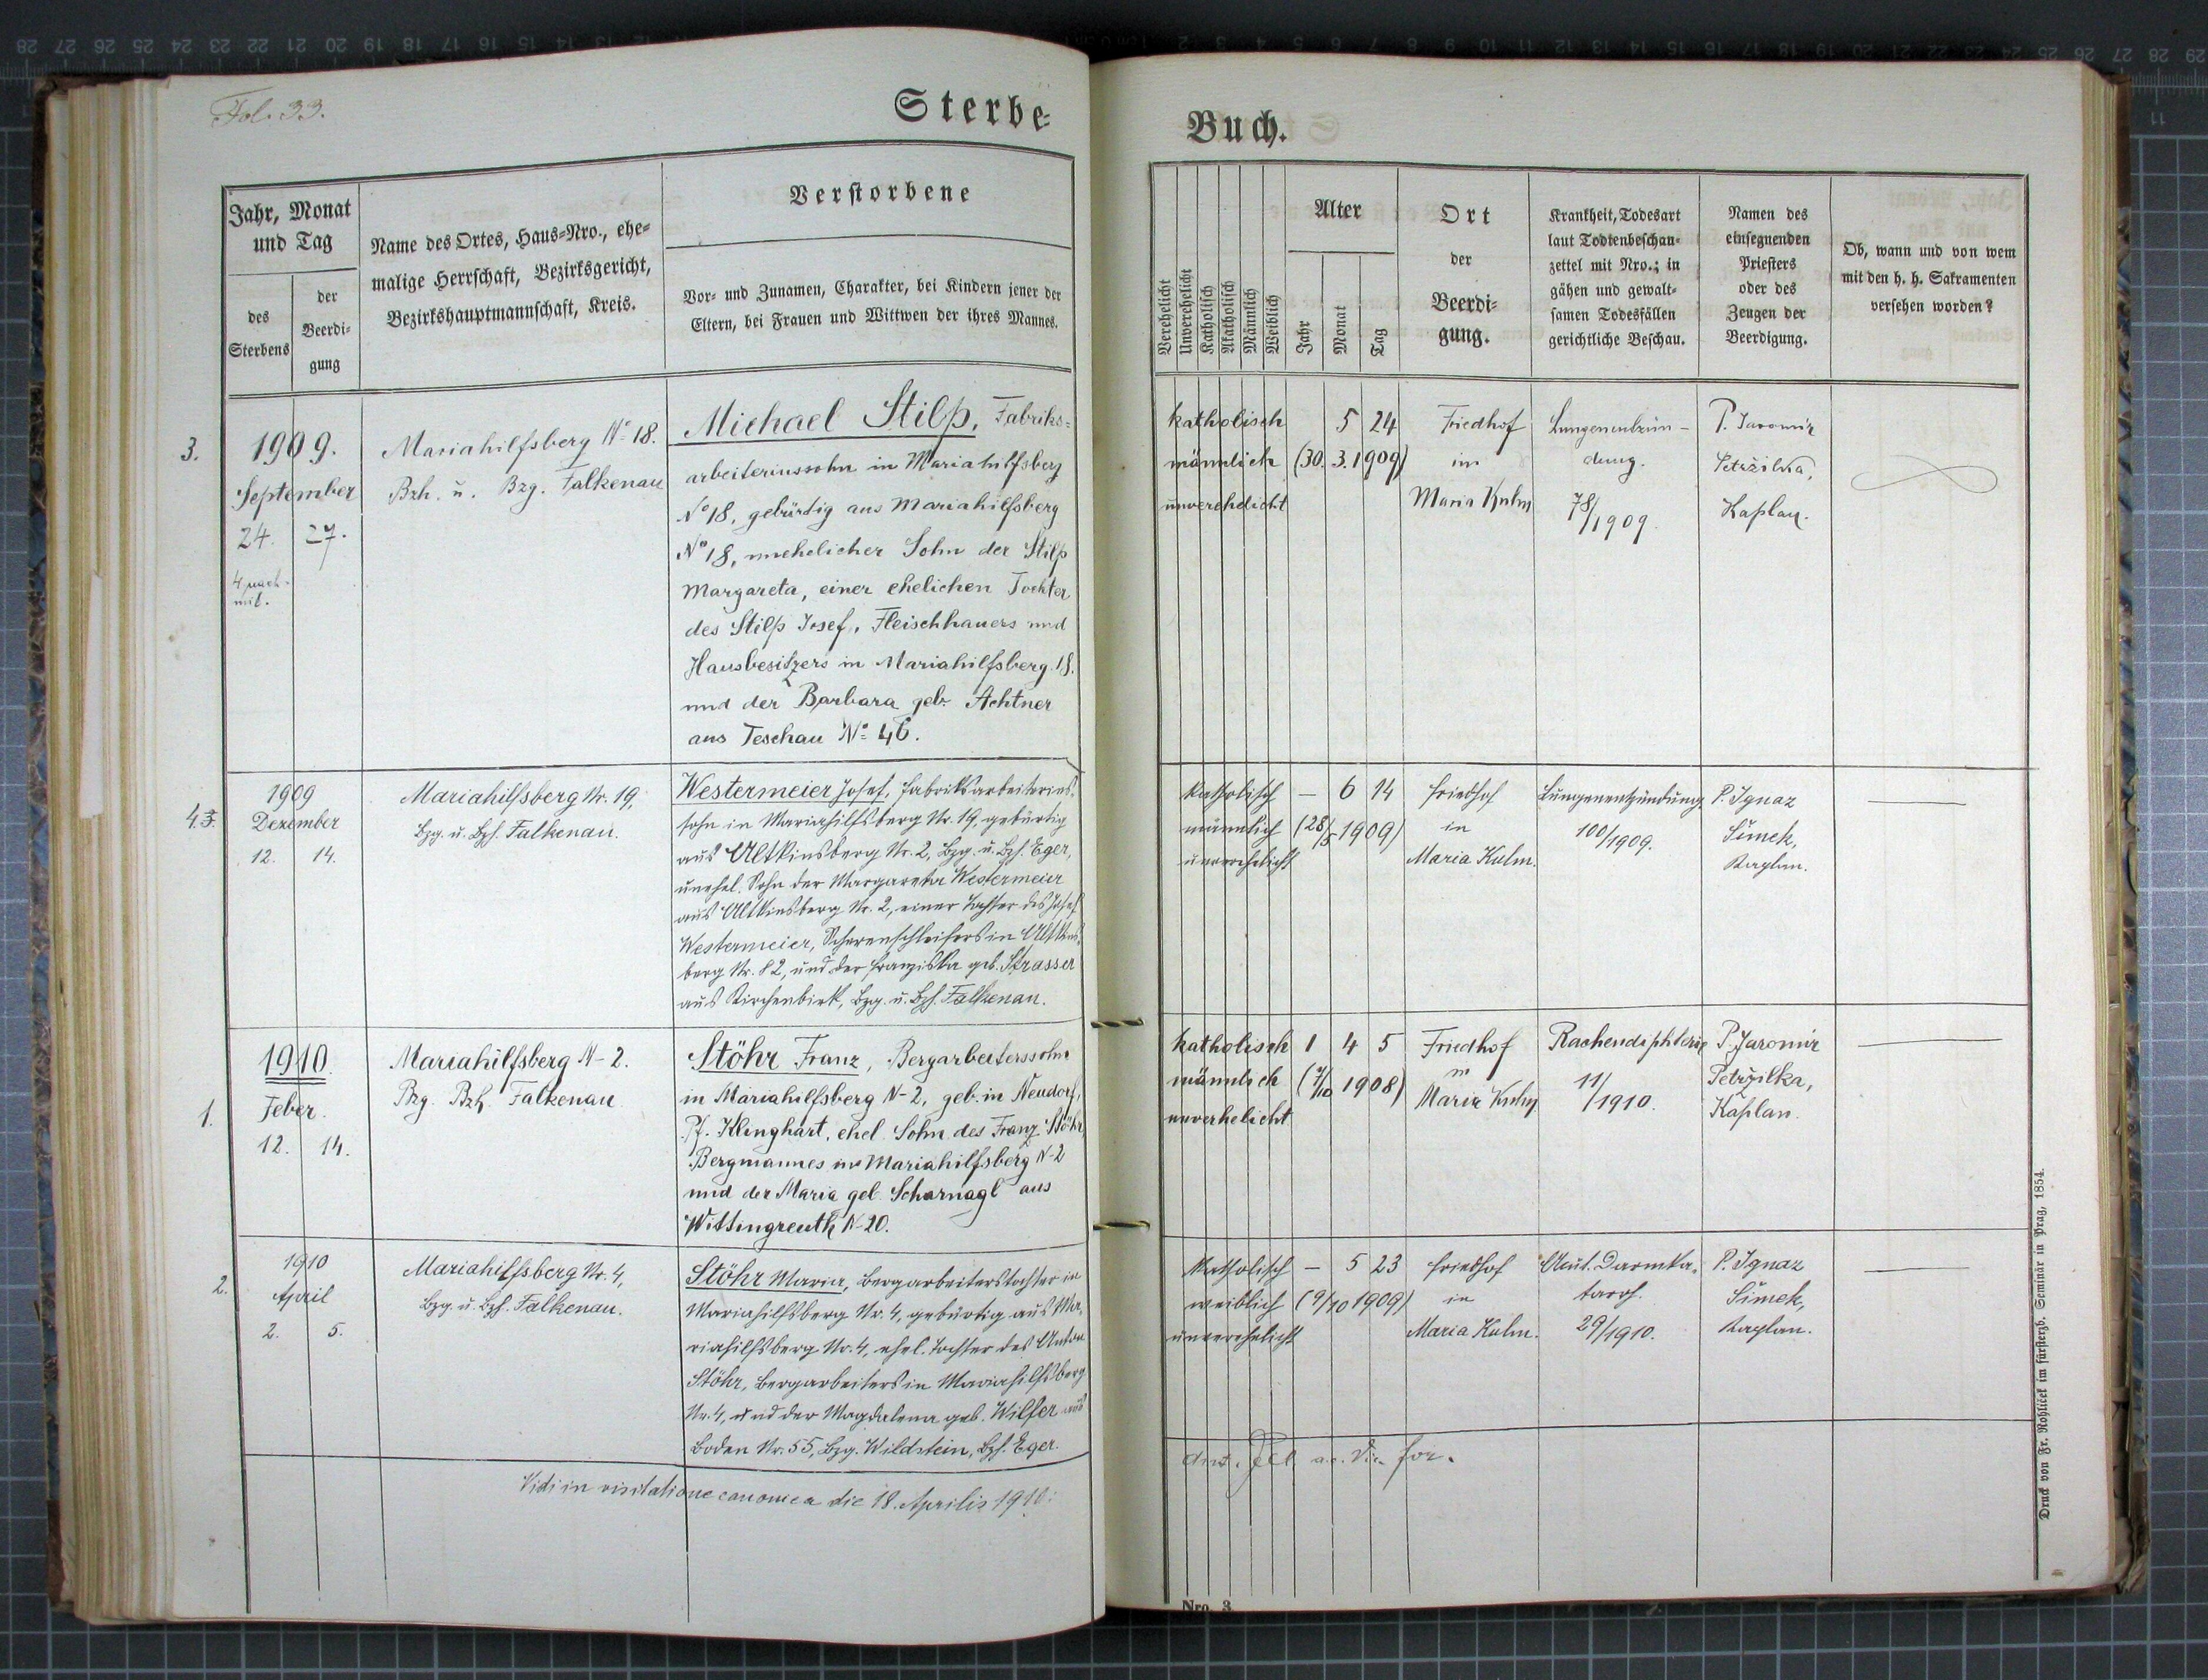 Fol. 33.
Sterbe-
Jahr, Monat
und Tag
des
Sterbens
der
Beerdi-
gung
Name des Ortes, Haus-Nro., ehe-
malige Herrschaft, Bezirksgericht,
Bezirkshauptmannschaft, Kreis.
Verstorbene
Vor- und Zunamen, Charakter, bei Kindern jener der
Eltern, bei Frauen und Wittwen der ihres Mannes.
3.
1909.
September
24. 27.
4 nach-
mit.
Mariahilfsberg No 18.
Bzh. u. Bzg. Falkenau
Michael Stilp, Fabriks-
arbeiterinssohn in Mariahilfsberg
No 18, gebürtig aus Mariahilfsberg
No 18, unehelicher Sohn der Stilp
Margareta, einer ehelichen Tochter
des Stilp Josef, Fleischhauers und
Hausbesitzers in Mariahilfsberg 18.
und der Barbara geb. Achtner
aus Teschau No 46.
4.
1909
Dezember
12. 14.
Mariahilfsberg Nr. 19,
Bzg. u. Bzh. Falkenau.
Westermeier Josef, Fabriksarbeiterins-
sohn in Mariahilfsberg Nr. 19, gebürtig
aus Altkinsberg Nr. 2, Bzg. u. Bzh. Eger,
unehel. Sohn der Margareta Westermeier
aus Altkinsberg Nr. 2, einer Tochter des Josef
Westermeier, Scherenschleifers in Altkins-
berg Nr. 82, und der Franziska geb. Strasser
aus Kirchenbirk, Bzg. u. Bzh. Falkenau.
1.
1910
Feber.
12. 14.
Mariahilfsberg N-2.
Bzg. Bzh. Falkenau
Stöhr Franz, Bergarbeiterssohn
in Mariahilfsberg N-2, geb. in Neudorf,
Pf. Klinghart, ehel. Sohn des Franz Stöhr,
Bergmannes in Mariahilfsberg N-2
und der Maria geb. Scharnagl aus
Wittingreuth N-20.
2.
1910
April
2. 5.
Mariahilfsberg Nr. 4,
Bzg. u. Bzh. Falkenau.
Stöhr Maria, Bergarbeiterstochter in
Mariahilfsberg Nr. 4, gebürtig aus Ma-
riahilfsberg Nr. 4, ehel. Tochter des Anton
Stöhr, Bergarbeiters in Mariahilfsberg
Nr. 4, und der Magdalena geb. Wilfer aus
Boden Nr. 55, Bzg. Wildstein, Bzh. Eger.
Vidi in visitatione canonica die 18. Aprilis 1910.
Buch.
Verehelicht
Unverehelicht
Katholisch
Akatholisch
Männlich
Weiblich
Alter
Jahr
Monat
Tag
Ort
der
Beerdi-
gung.
Krankheit, Todesart
laut Todtenbeschau-
zettel mit Nro.; in
gähen und gewalt-
samen Todesfällen
gerichtliche Beschau.
Namen des
einsegnenden
Priesters
oder des
Zeugen der
Beerdigung.
Ob, wann und von wem
mit den h. h. Sakramenten
versehen worden?
katholisch 5 24
männlich (30. 3. 1909)
unverehelicht
Friedhof
in
Maria Kulm
Lungenentzün-
dung.
78/1909.
P. Jaromír
Petržilka,
Kaplan.
katholisch – 6 14
männlich (28/5 1909)
unverehelicht
Friedhof
in
Maria Kulm.
Lungenentzündung
100/1909.
P. Ignaz
Šimek,
Kaplan.
katholisch 1 4 5
männlich (7/10 1908)
unverehelicht
Friedhof
in
Maria Kulm
Rachendiphterie
11/1910.
P. Jaromír
Petržilka,
Kaplan.
katholisch – 5 23
weiblich (9/10 1909)
unverehelicht
Friedhof
in
Maria Kulm.
Akut. Darmka-
tarrh.
29/1910.
P. Ignaz
Šimek,
Kaplan.
Nro. 3.
Druck von Fr. Rohlicek im fürsterzb. Seminär in Prag, 1854.